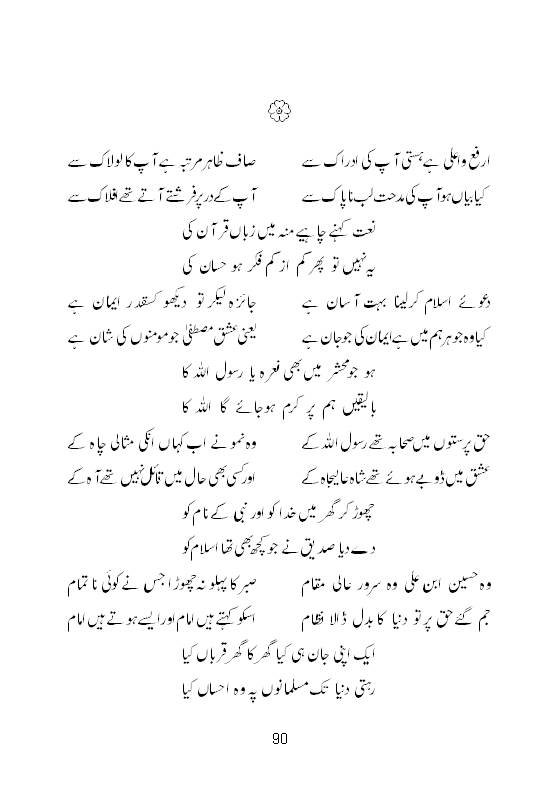 ارفع و اعلی ہے ہستی آپ کی ادراک سے صاف ظاہر مرتبہ ہے آپ کا لولاک سے
کیا بیاں ہو آپ کی مدحت لب ناپاک سے آپ کے در پر فرشتے آتے تھے افلاک سے
نعت کہنے چاہیے منہ میں زباں قرآن کی
یہ نہیں تو پھر کم از کم فکر ہو حسان کی
دعوئے اسلام کرلینا بہت آسان ہے جائزہ لیکر تو دیکھو کسقدر ایمان ہے
کیا وہ جوہر ہم میں ہے ایمان کی جو جان ہے یعنی عشق مصطفیٰ جو مومنوں کی شان ہے
ہو جو محشر میں بھی نعرہ یا رسول اللہ کا
بالیقیں ہم پر کرم ہوجائے گا اللہ کا
حق پرستوں میں صحابہ تھے رسول اللہ کے وہ نمونے اب کہاں انکی مثالی چاہ کے
عشق میں ڈوبے ہوئے تھے شاہ عالیجاہ کے اور کسی بھی حال میں قائل نہیں تھے آہ کے
چھوڑ کر گھر میں خدا کو اور نبی کے نام کو
دے دیا صدیق نے جو کچھ بھی تھا اسلام کو
وہ حسین ابن علی وہ سرور عالی مقام صبر کا پہلو نہ چھوڑا جس نے کوئی ناتمام
جم گئے حق پر تو دنیا کا بدل ڈالا نظام اسکو کہتے ہیں امام اور ایسے ہوتے ہیں امام
ایک اپنی جان ہی کیا گھر کا گھر قرباں کیا
رہتی دنیا تک مسلمانوں پہ وہ احساں کیا
90